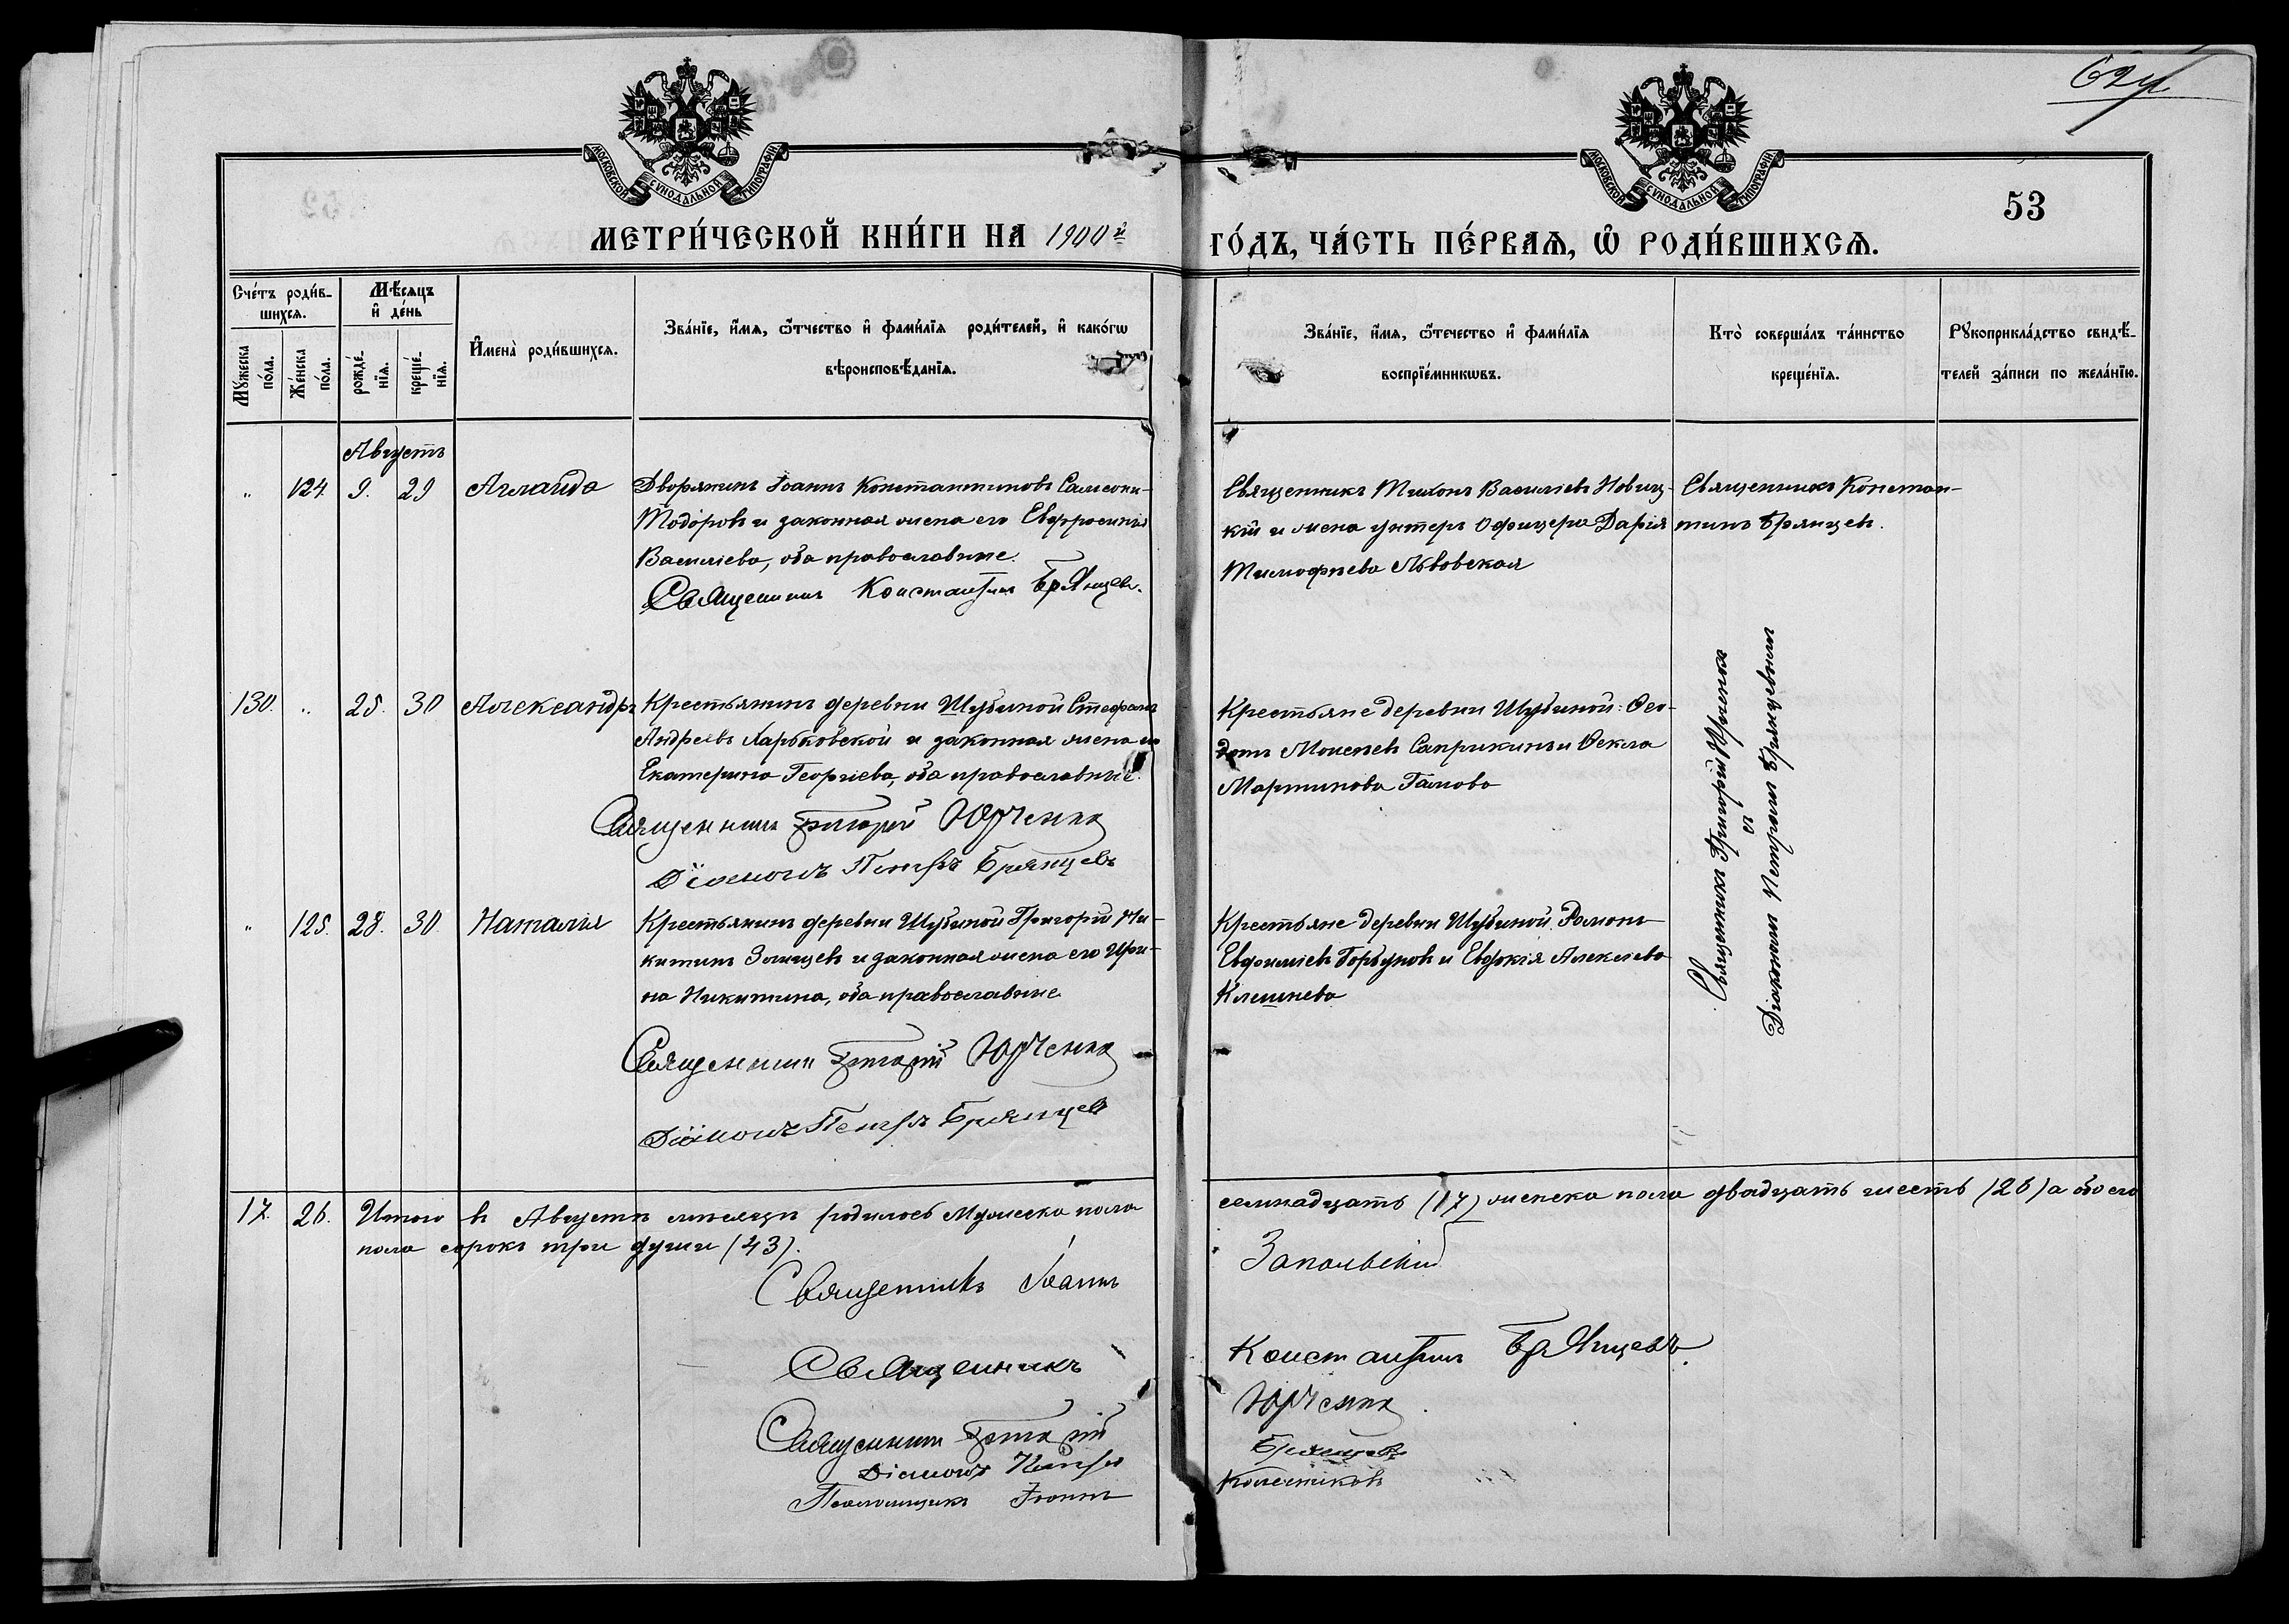 62
МОСКОВСКОЙ СѴНОДАЛЬНОЙ ТИПОГРАФІИ
МОСКОВСКОЙ СѴНОДАЛЬНОЙ ТИПОГРАФІИ
53
МЕТРИ́ЧЕСКОЙ КНИ́ГИ НА 1900й
ГО́ДЪ, ЧА́СТЬ ПЕ́РВАѦ, Ѡ РОДИ́ВШИХСѦ.
Сче́тъ роди́в-
шихсѧ.
Мꙋ́жеска
по́ла.
Же́нска
по́ла.
Мѣ́сяцъ
и҆ де́нь
рожде́-
нїѧ.
креще́-
нїѧ.
И҆мена̀ роди́вшихсѧ.
Зва́нїе, и҆́мѧ, ѻ҆́тчество и҆ фами́лїѧ роди́телей, и҆ како́гѡ
вѣроисповѣ́данїѧ.
Зва́нїе, и҆́мѧ, ѻ҆те́чество и҆ фами́лїѧ
воспрїе́мникѡвъ.
Кто̀ соверша́лъ та́инство
креще́нїѧ.
Рꙋкоприкла́дство свидѣ́-
телей за́писи по жела́нїю.
Августъ
" 124. 9. 29 Аглаида
Дворянинъ Іоаннъ Константиновъ Самсони-
Тодоровъ и законная жена его Евфросинія
Василіева, оба православные.
Священникъ Константинъ Брянцевъ.
Священникъ Тихонъ Василіевъ Новиц-
кій и жена унтеръ офицера Дарія
Тимофѣева Львовская
Священникъ Констан-
тинъ Брянцевъ.
130. " 25. 30 Александръ
Крестьянинъ деревни Шубиной Стефанъ
Андреевъ Харьковской и законная жена его
Екатерина Георгіева, оба православные.
Священникъ Григорій Юрченко
Діаконъ Петръ Брянцевъ
Крестьяне деревни Шубиной: Ѳео-
дотъ Моисеевъ Саприкинъ и Ѳекла
Мартинова Гамова
Священникъ Григорій Юрченко
съ
Діакономъ Петромъ Брянцевымъ
" 125. 28. 30. Наталія
Крестьянинъ деревни Шубиной Григорій Ни-
китинъ и законная жена его Ири-
на Никитина, оба православные
Священникъ Григорій Юрченко
Діаконъ Петръ Брянцевъ
Крестьяне деревни Шубиной Романъ
Евфиміевъ Горбуновъ и Евдокія Алексіева
Клешнева
17. 26. Итого въ Августѣ мѣсяцѣ родилось мужеска пола
семнадцать (17) женска пола двадцать шесть (26) а обоего
пола сорокъ три души (43).
Священникъ Іоаннъ Запольскій
Священникъ Константинъ Брянцевъ.
Священникъ Григорій Юрченко.
Діаконъ Петръ Брянцевъ
Псаломщикъ Колесниковъ